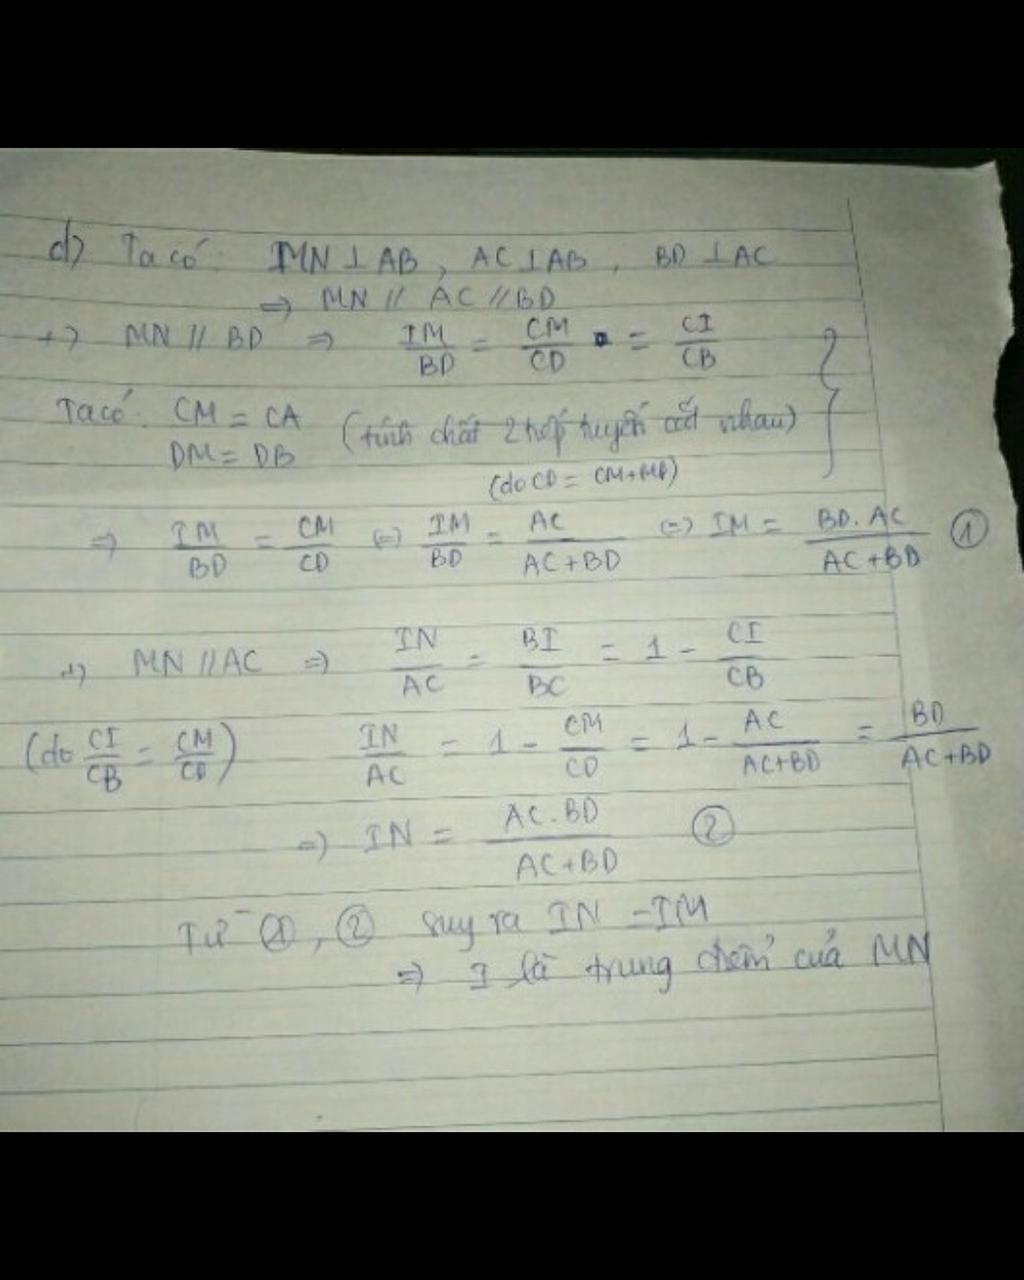 d) Ta có: MN ⊥ AB, AC ⊥ AB, BD ⊥ AC
=> MN // AC // BD
+) MN // BD => IM/BD = CM/CD = CI/CB
Ta có: CM = CA (tính chất 2 tiếp tuyến cắt nhau)
DM = DB
(do CD = CM+MD)
=> IM/BD = CM/CD <=> IM/BD = AC/(AC+BD) <=> IM = BD.AC/(AC+BD) ①
+) MN // AC => IN/AC = BI/BC = 1 - CI/CB
(do CI/CB = CM/CD) IN/AC = 1 - CM/CD = 1 - AC/(AC+BD) = BD/(AC+BD)
=> IN = AC.BD/(AC+BD) ②
Từ ①, ② suy ra IN = IM
=> I là trung điểm của MN